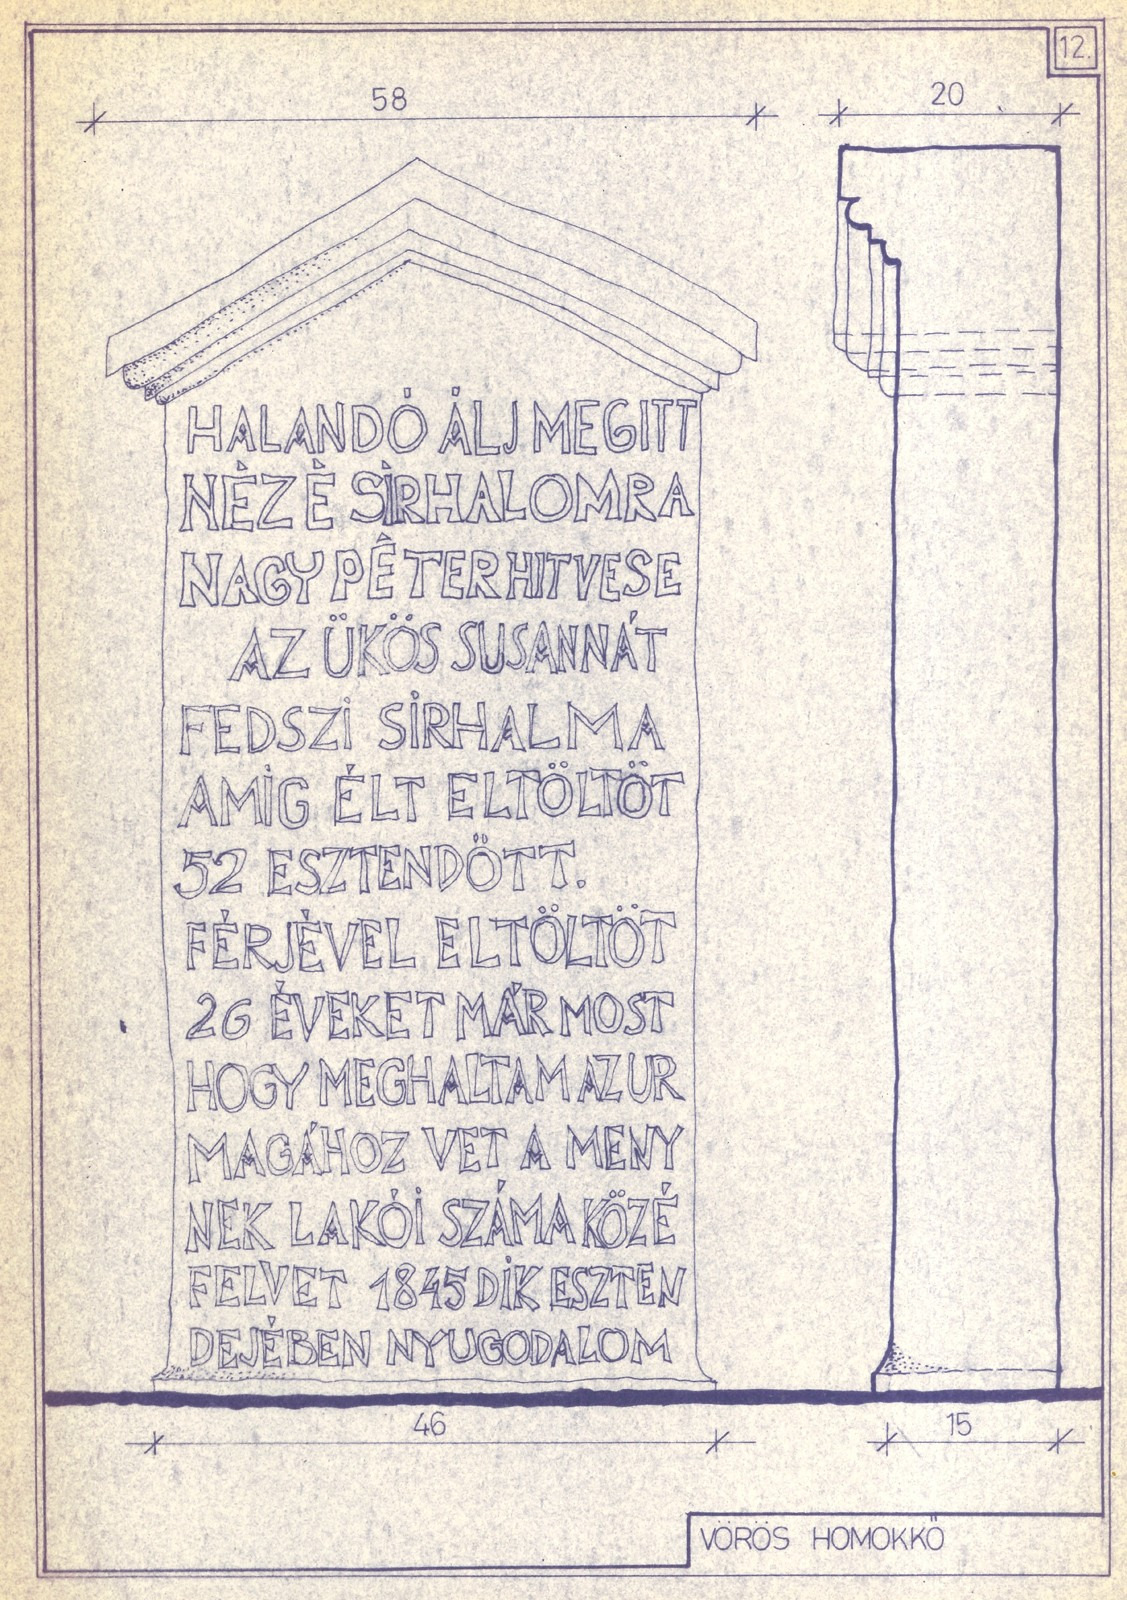 12.
58
20
HALANDÓ ÁLJ MEG ITT
NÉZ É SÍRHALOMRA
NAGY PÉTER HITVESE
AZ ÜKÖS SUSANNÁT
FEDSZI SÍRHALMA
AMIG ÉLT ELTÖLTÖT
52 ESZTENDÖTT.
FÉRJÉVEL ELTÖLTÖT
26 ÉVEKET MÁR MOST
HOGY MEGHALTAM AZ UR
MAGÁHOZ VET A MENY
NEK LAKÓI SZÁMA KÖZÉ
FELVET 1845DIK ESZTEN
DEJÉBEN NYUGODALOM
46
15
VÖRÖS HOMOKKŐ